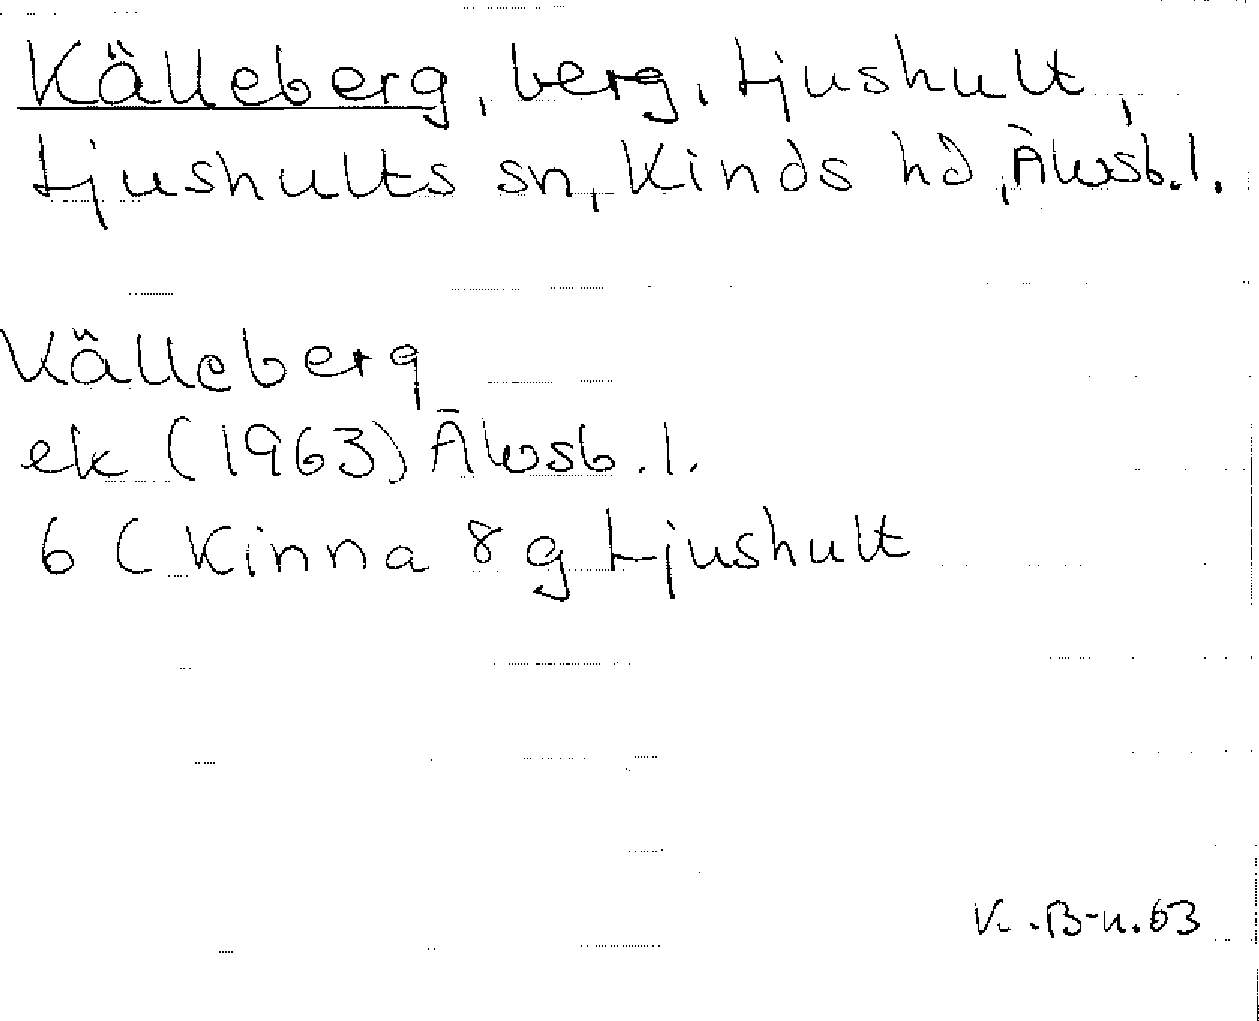 Källeberg, berg, Ljushult,
Ljushults sn, Kinds hd, Älvsb.l.
Källeberg
ek (1963) Älvsb.l.
6 C Kinna 8 g Ljushult
K. B-n. 63